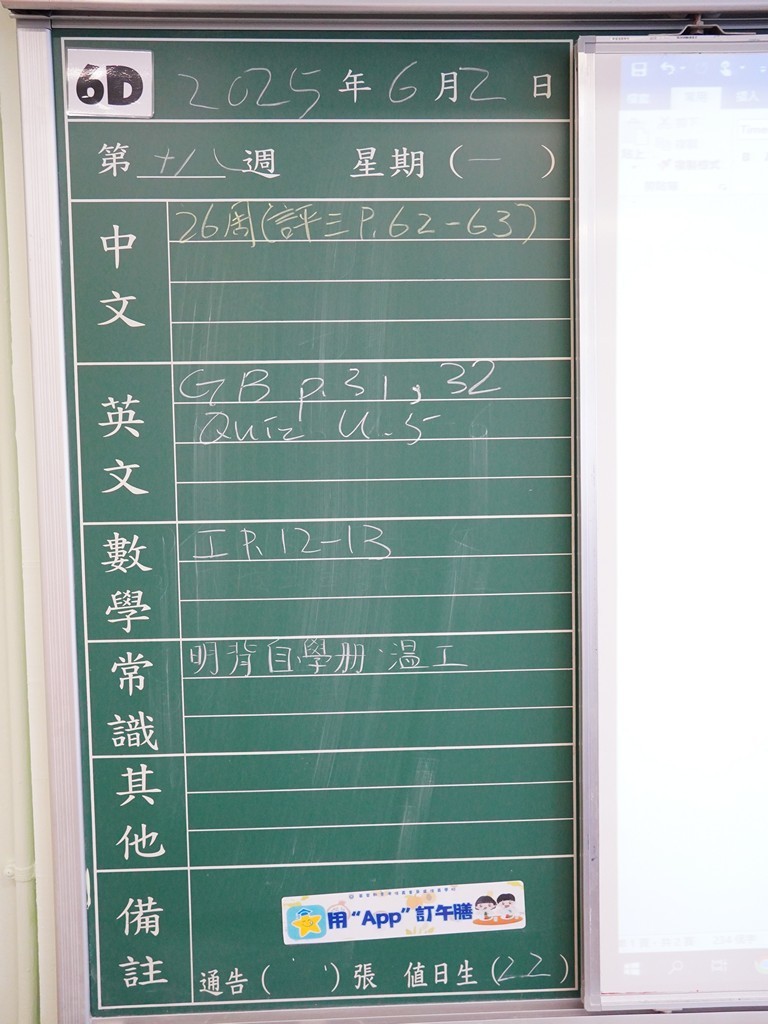 6D 2025年6月2日
第十八週 星期(一)
中文 26周(評三P.62-63)
英文 GB p.31, 32
Quiz U.5
數學 工P.12-13
常識 明背自學册·溫工
其他
備註
用“App”訂午膳
通告( )張 值日生(22)